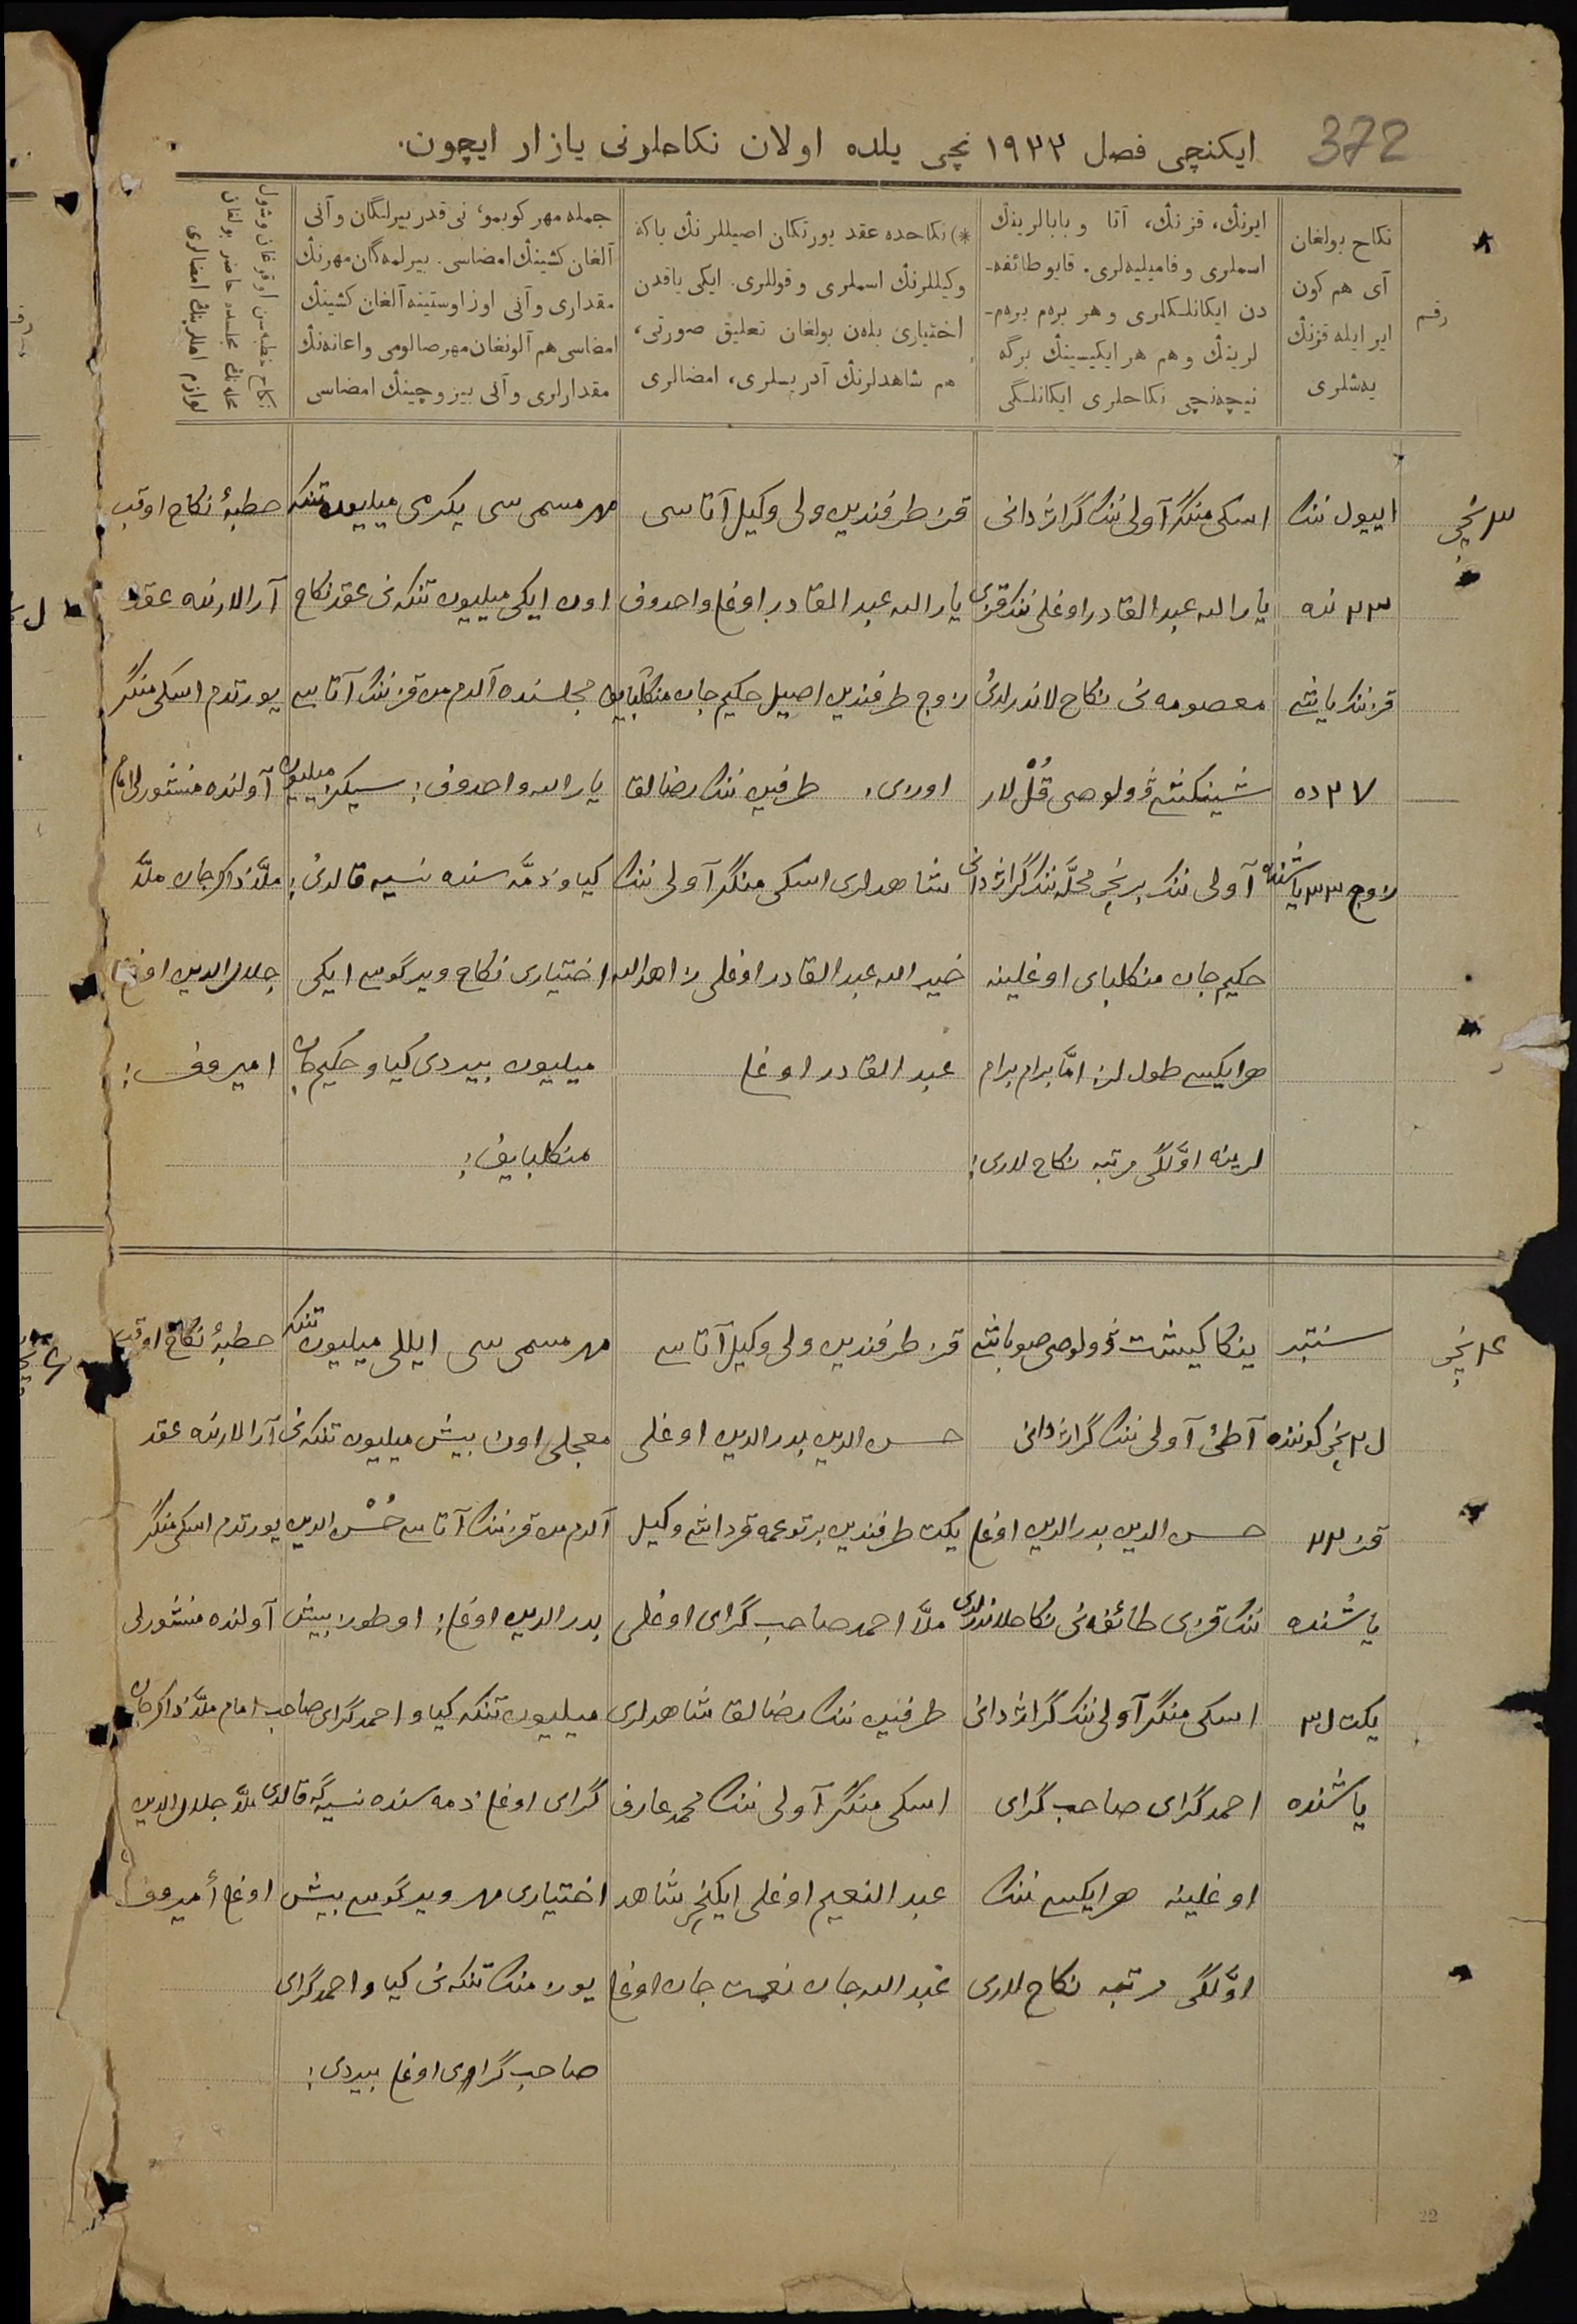 372
ایکنچی فصل ١٩٢٣ نچی یلده اولان نکاحلرنی یازار ایچون.
رقم
نکاح بولغان
آی هم کون
ایر ایله قزنڭ
یەشلری
ایرنڭ، قزنڭ، آتا و بابالرینڭ
اسملری و فامیلیەلری. قایو طائفه-
دن ایکانلکلری و هر برەم برەم-
لرینڭ و هم هر ایکیسینڭ برگه
نیچەنچی نکاحلری ایکانلگی
*) نکاحده عقد یورتکان اصیللرنڭ یاکه
وکیللرنڭ اسملری و قوللری. ایکی یاقدن
اختیاری بلەن بولغان تعلیق صورتی،
هم شاهدلرنڭ آدریسلری، امضالری
جمله مهر کوبمو، نی قدر بیرلگان و آنی
آلغان کشینڭ امضاسی. بیرلمەگان مهرنڭ
مقداری و آنی اوز اوستینه آلغان کشینڭ
امضاسی هم آلونغان مهر صالومی و اعانەنڭ
مقدارلری و آنی بیروچینڭ امضاسی
نکاح خطبەسن اوقوغان و شول
مجلسده حاضر بولغان
لوازم اهللرینڭ امضالری
٣نچی
اییول ننڭ
٢٣ نده
قزننڭ یاشی
٢٧ ده
زوج ٣٣ یاشنده
اسکی منگر آولی ننڭ گراژدانی
یارالله عبدالقادر اوغلی ننڭ قزی
معصومه نی نکاح لاندرلدی
شینکشی ڤولوصی قُل لار
آولی ننڭ برنچی محلّه ننڭ گراژدانی
حکیم جان منکلبای اوغلینه
هر ایکیسی طول لر: امّا برام برام
لرینه اوّلگی مرتبه نکاح لاری:
قز طرفندین ولی وکیل آتاسی
یارالله عبدالقادر اوغلی واحدوف
زوج طرفندین اصیل حکیم جان منکلبایف
اوزی، طرفین ننڭ رضالقا
شاهدلری اسکی منگر آولی ننڭ
خیرالله عبدالقادر اوغلی زاهدالله
عبدالقادر اوغلی
مهر مسمی سی یکرمی میلیون تنکه
اون ایکی میلیون تنکه نی عقد نکاح
مجلسنده آلدم من قزننڭ آتاسی
یارالله واحدوف: سیکز میلیون
کیاو ذمّه سنده نسیه قالدی:
اختیاری نکاح ویرگوسی ایکی
میلیون بیردی کیاو حکیم جان
منکلبایف:
خطبهٔ نکاح اوقب
آرالارنده عقد
یورتدم اسکی منگر
آولنده منشورلی امام
ملّا ذاکرجان ملّا
جلال الدین اوغلی
امیروف:
٤نچی
سنتبر
٣نچی کوننده
قز ٢٢
یاشنده
یکت ٣
یاشنده
ینکا کیشت ڤولوصی صوباشی
آطئ آولی ننڭ گراژدانی
حسن الدین بدرالدین اوغلی
ننڭ قزی طائفه نی نکاحلاندرلدی
اسکی منگر آولی ننڭ گراژدانی
احمدگرای صاحب گرای
اوغلینه هر ایکیسی ننڭ
اوّلگی مرتبه نکاح لاری
قز طرفندین ولی وکیل آتاسی
حسن الدین بدرالدین اوغلی
یکت طرفندین برتوعمه قرداشی وکیل
ملّا احمد صاحب گرای اوغلی
طرفین ننڭ رضالقا شاهدلری
اسکی منگر آولی ننڭ محمد عارف
عبدالنعیم اوغلی ایکنچی شاهد
عبدالله جان نعمت جان اوغلی
مهر مسمی سی ایللی میلیون تنکه
معجلی اون بیش میلیون تنکه نی
آلدم من قزننڭ آتاسی حُسْن الدین
بدرالدین اوغلی: اوطوز بیش
میلیون تنکه کیاو احمدگرای صاحب
گرای اوغلی ذمه سنده نسیه گه قالدی
اختیاری مهر ویرگوسی بیش
یوز منڭ تنکه نی کیاو احمدگرای
صاحب گرای اوغلی بیردی:
خطبهٔ نکاح اوقب
آرالارنده عقد
یورتدم اسکی منگر
آولنده منشورلی
امام ملّا ذاکرجان
ملّا جلال الدین
اوغلی أمیروف
22